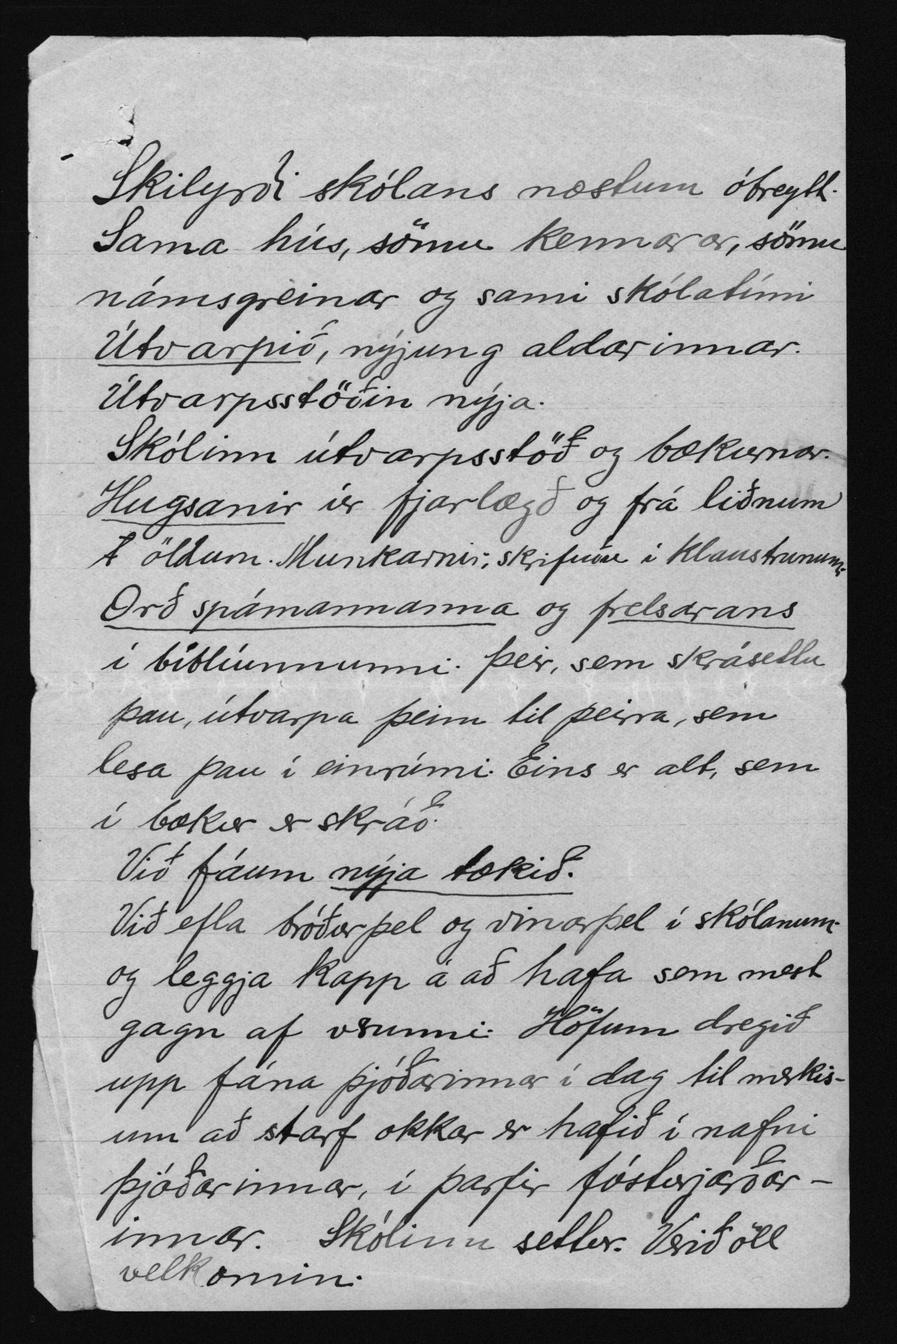 Skilyrði skólans næstum óbreytt.
Sama hús, sömu kennarar, sömu
námsgreinar og sami skólatími
Útvarpið, nýjung aldarinnar.
Útvarpsstöðin nýja.
Skólinn útvarpsstöð og bækurnar.
Hugsanir úr fjarlægð og frá liðnum
öldum. Munkarnir, skrifuðu í klaustrunum.
Orð spámannanna og frelsarans
í biblíunnunni. Þeir, sem skrásettu
þau, útvarpa þeim til þeirra, sem
lesa þau í einrúmi. Eins er alt, sem
í bækur er skráð.
Við fáum nýja tækið.
Við efla bróðurþel og vinarþel í skólanum.
og leggja kapp á að hafa sem mest
gagn af verunni. Höfum dregið
upp fána þjóðarinnar í dag til merkis-
um að starf okkar er hafið í nafni
þjóðarinnar, í þarfir fósturjarðar-
innar. Skólinn settur. Verið öll
velkomin.